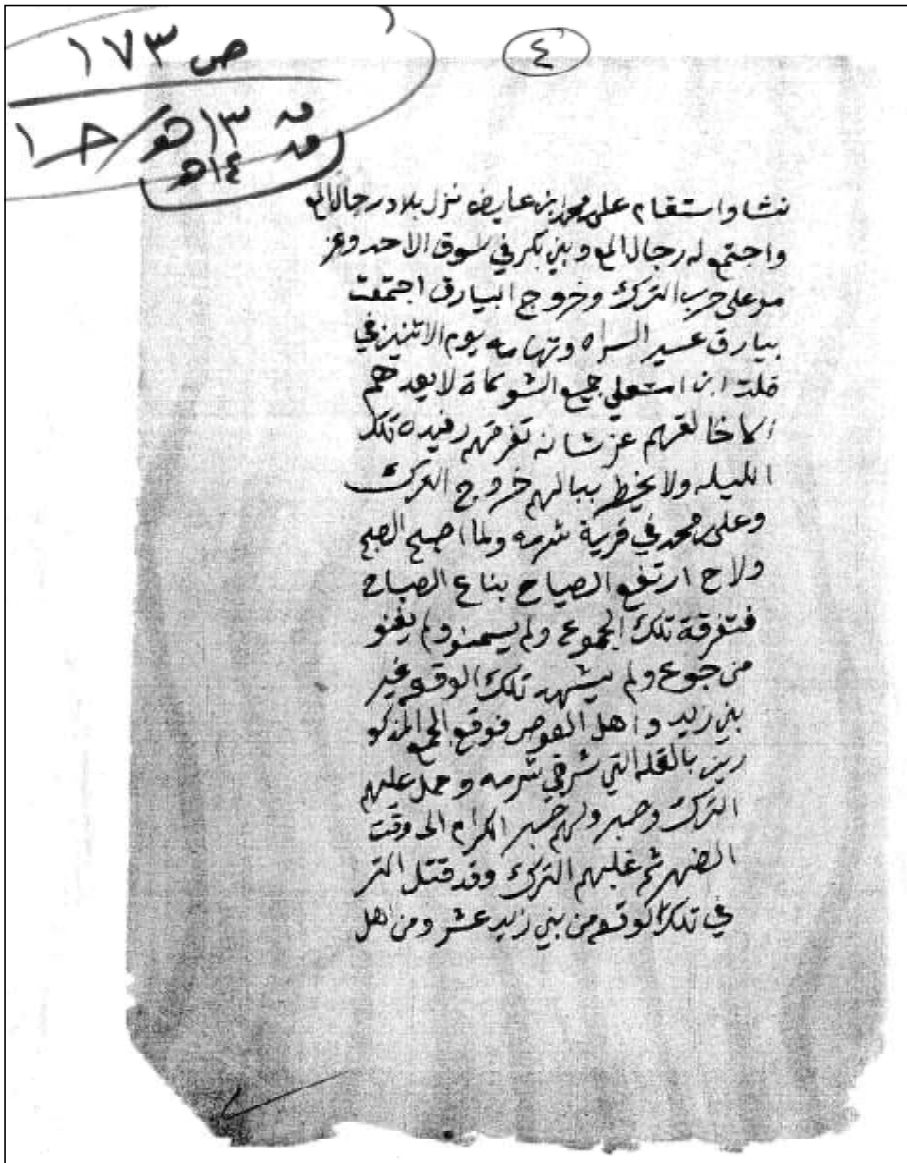 ص ١٧٣
٤
ق ١٣ هـ / ج ١
ق ١٤ هـ
نشا واستقام على محمد ابن عايض نزل بلاد رجال المع
واجتمع له رجال المع وبني بكر في سوق الاحد وعز
مو على حرب الترك وخروج البيارق اجتمعت
بيارق عسير السراه وتهامه يوم الاثنين في
ابن جميع لا يعدهم
خالقهم عز شانه تفرقهم رفيده تلك
الليله ولا يخطر ببالهم خروج الترك
وعلى محمد في قرية شرمه ولما اصبح الصبح
ولاح ارتفع الصياح بناع الصباح
فتفرقة تلك الجموع ولم يسمنو ولم يغنو
من جوع ولم يشهد تلك الوقعه غير
بني زيد واهل العوص فوقع الجمع المذكو
رين بالقله التي شرقي شرمه وحمل عليهم
الترك وصبر ولهم صبر الكرام الى وقت
الضهر ثم غلبهم الترك وقد قتل التر
في تلك من بني زيد عشر ومن اهل